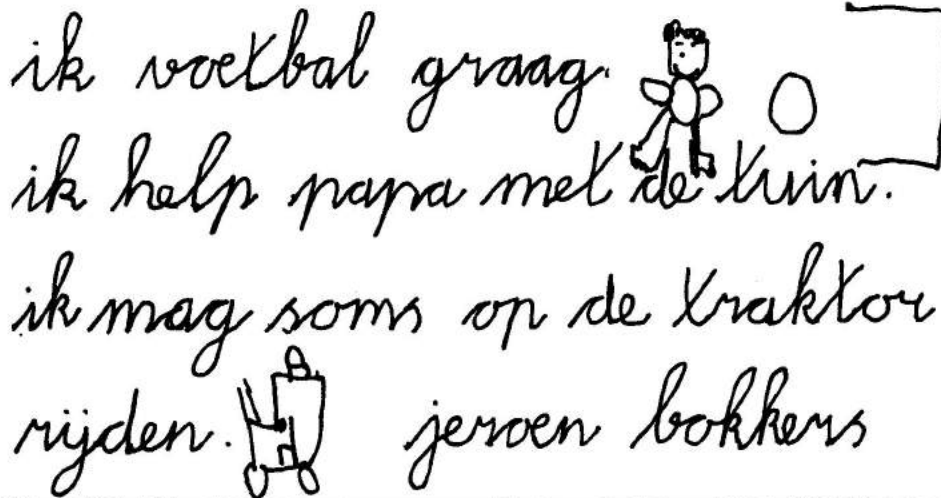 ik voetbal graag.
ik help papa met de tuin.
ik mag soms op de traktor
rijden. jeroen bokkers